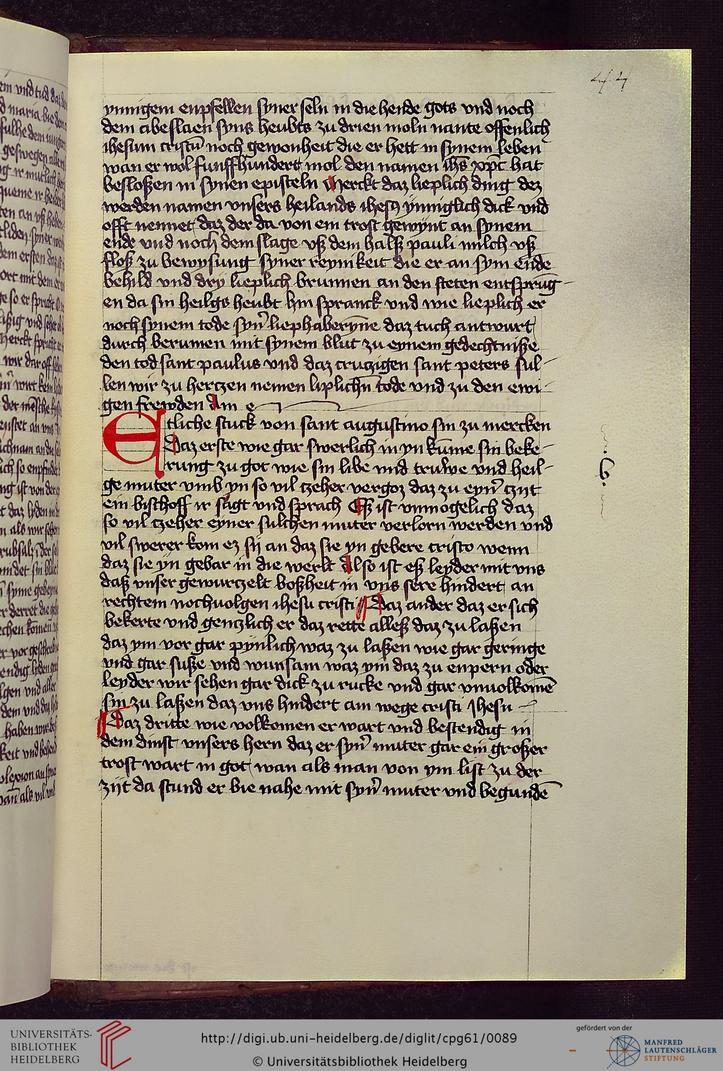 44
ynnigem enpfellen syner seln in die hende gots vnd noch
dem abeslaen syns heubts zu drien moln nante offenlich
ihesum cristū noch gewonheit die er hett in synem leben
wan er wol funffhundert mol den namen ihs xpc hat
besloßen in synen episteln Merckt daz lieplich ding dez
werden namen vnsers heilands ihesu ynniglich dick vnd
offt nennet daz der da von ein trost gewynt an synem
ende vnd noch dem slage vß dem halß pauli milch vß
floß zu bewysung syner reynikeit die er an sym ende
behild vnd dry lieplich brunnen an den steten entsprūg-
en da sin heilgs heubt hin spranck vnd wie lieplich er
noch synem tode syn̄ liephaberyn̄e daz tuch antwurt
durch berunnen mit synem blut zu eynem gedechtniße
den tod sant paulus vnd daz cruczigen sant peters sul-
len wir zu herczen nemen liplichn̄ tode vnd zu den ewi-
gen frewden Am e
Etliche stuck von sant augustino sin zu mercken
Daz erste wie gar swerlich in yn kūme sin beke-
rung zu got wie sin libe vnd truwe vnd heil-
ge muter vmb yn so vil czeher vergoz daz zu eyn̄ czijt
ein bischoff ir sagt vnd sprach Eß ist vnmogelich daz
so vil czeher eyner sulchen muter verlorn werden vnd
vil swerer kom ez sij an daz sie yn gebere cristo wenn
daz sie yn gebar in die werlt Also ist eß leyder mit vns
daß vnser gewurczelt boßheit in vns sere hindert an
rechtem nochuolgen ihesu cristi Daz ander daz er sich
bekerte vnd genczlich er daz rette alleß daz zu laßen
daz ym vor gar pynlich waz zu laßen wie gar geringe
vnd gar suße vnd wunsam waz ym daz zu enpern oder
leyder wir sehen gar dick zu rucke vnd gar vnuolkomē
sin zu laßen daz vns hindert am wege cristi Jhesu
Daz dritte wie volkomen er wart vnd bestendig in
dem dinst vnsers hern daz er syn̄ muter gar ein großer
trost wart in got wan als man von ym list zu der
zijt da stund er bie nahe mit syn̄ muter vnd begundē
6
UNIVERSITÄTS-
BIBLIOTHEK
HEIDELBERG
http://digi.ub.uni-heidelberg.de/diglit/cpg61/0089
© Universitätsbibliothek Heidelberg
gefördert von der
MANFRED
LAUTENSCHLÄGER
STIFTUNG